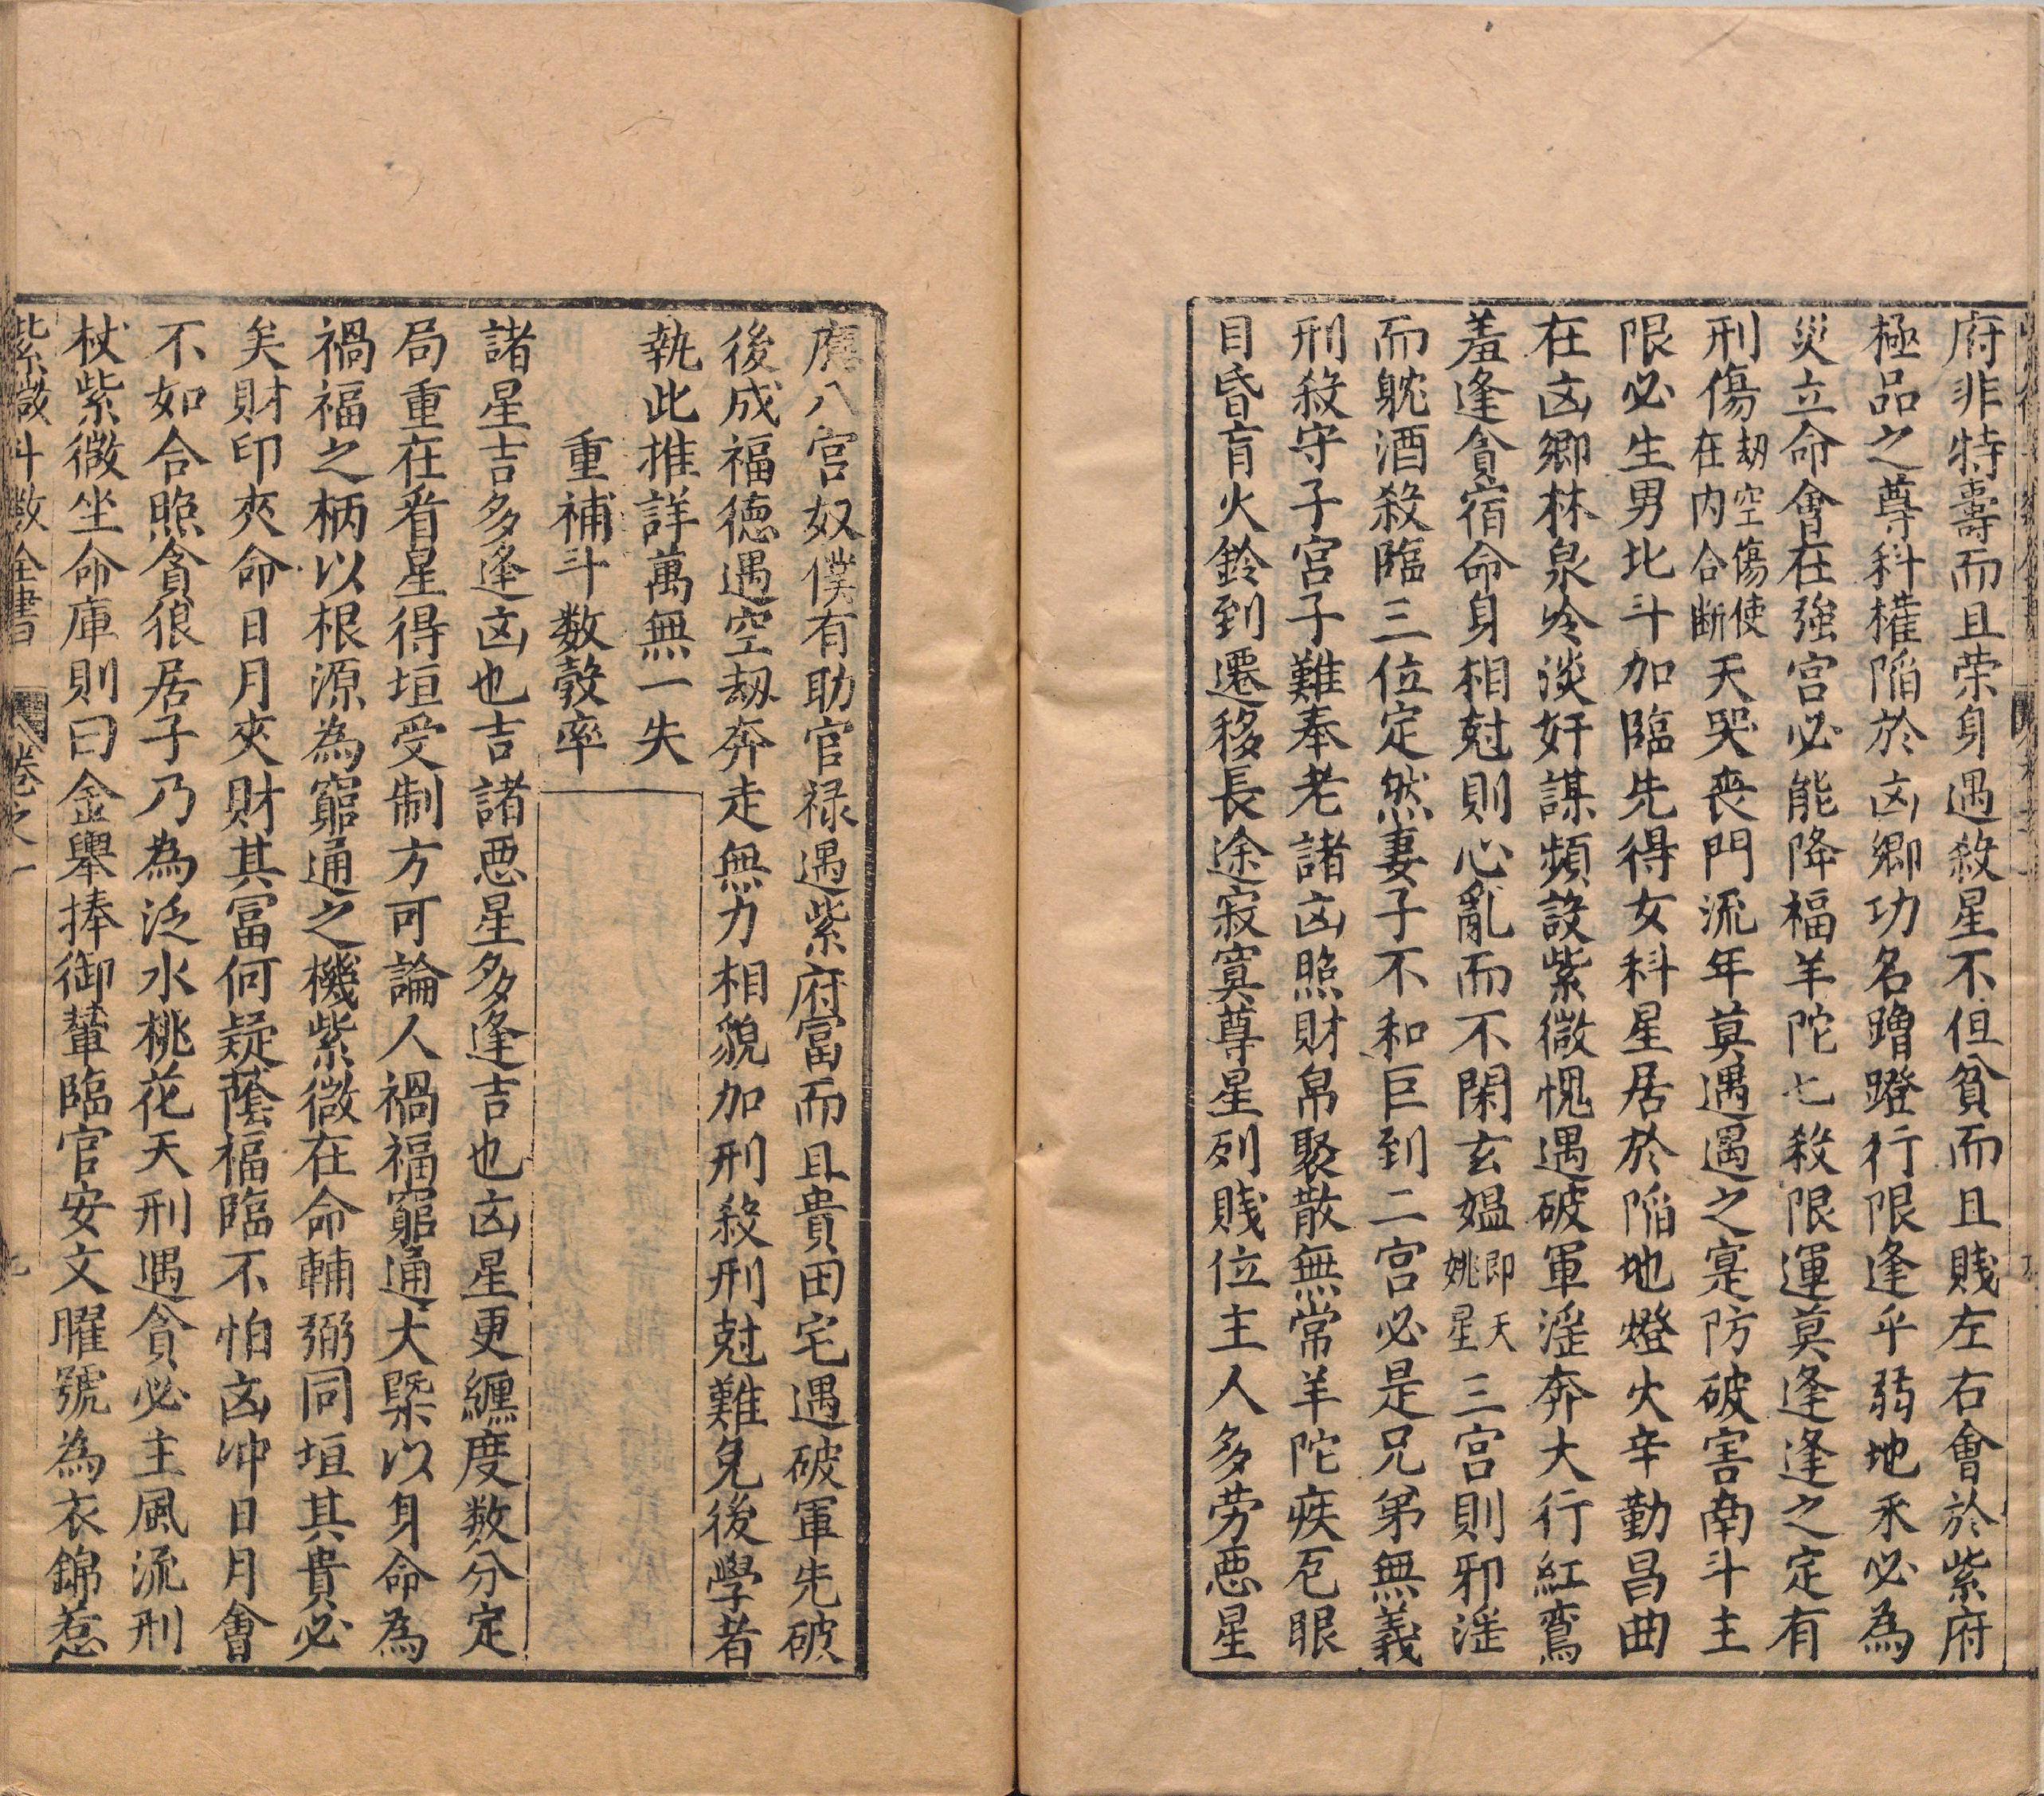 府非特壽而且荣身遇殺星不但貧而且賎左右會於紫府
極品之尊科權陥於凶鄉功名蹭蹬行限逢乎弱地禾必為
災立命會在強宮必能降福羊陀七殺限運莫逢逢之定有
刑傷劫空傷使在内合断天哭喪門流年莫遇遇之寔防破害南斗主
限必生男北斗加臨先得女科星居於陥地燈火辛勤昌曲
在凶鄉林泉冷淡奸謀頻設紫微愧遇破軍淫奔大行紅鸞
羞逢貪宿命身相尅則心亂而不閑玄媪即天姚星三宮則邪淫
而躭酒殺臨三位定然妻子不和巨到二宮必是兄弟無義
刑殺守子宮子難奉老諸凶照財帛聚散無常羊陀疾厄眼
目昏盲火鈴到遷移長途寂寞尊星列賎位主人多劳惡星
應八宮奴僕有助官禄遇紫府富而且貴田宅遇破軍先破
後成福德遇空劫奔走無力相貌加刑殺刑尅難免後學者
執此推詳萬無一失
重補斗数彀率
諸星吉多逢凶也吉諸惡星多逢吉也凶星更纏度数分定
局重在看星得垣受制方可論人禍福窮通大槩以身命為
禍福之柄以根源為窮通之機紫微在命輔弼同垣其貴必
矣財印夾命日月夾財其冨何疑蔭福臨不怕凶冲日月會
不如合照貪狼居子乃為泛水桃花天刑遇貪必主風流刑
杖紫微坐命庫則曰金轝捧御輦臨官安文曜號為衣錦惹
紫微斗数全書 卷之一